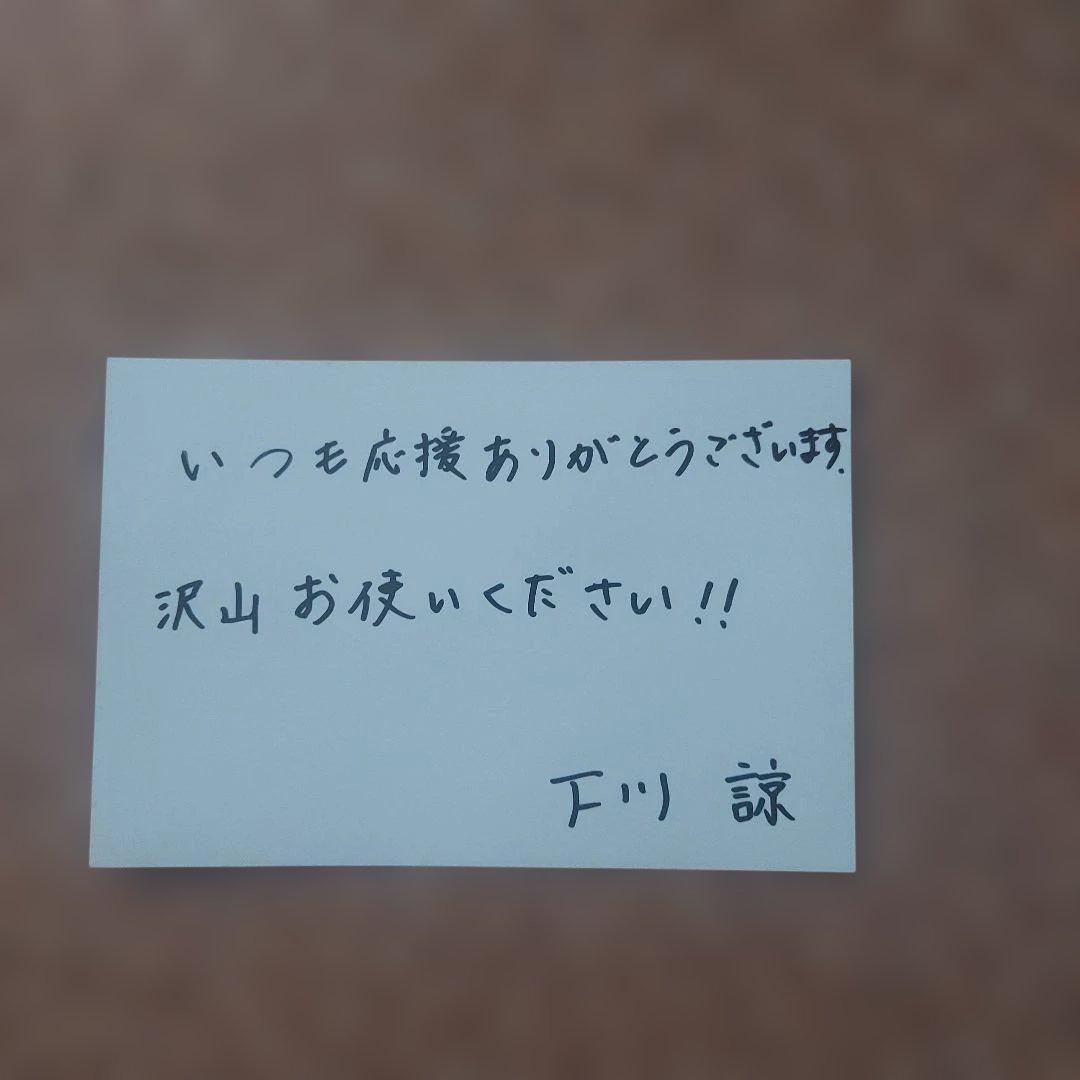 いつも応援ありがとうございます.
沢山お使いください!!
下川 諒